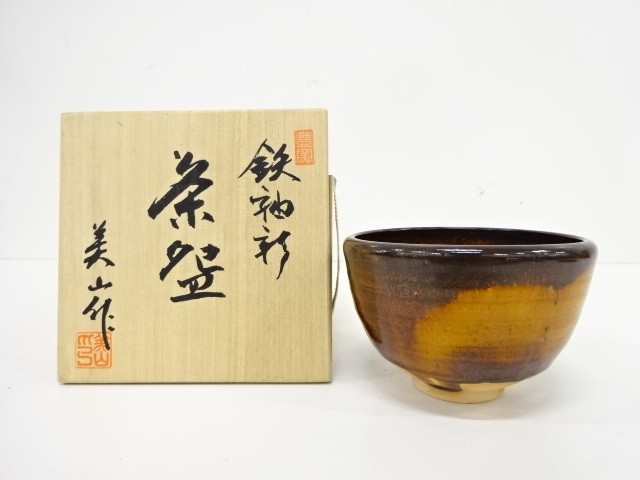 鉄釉彩
茶盌
美山作